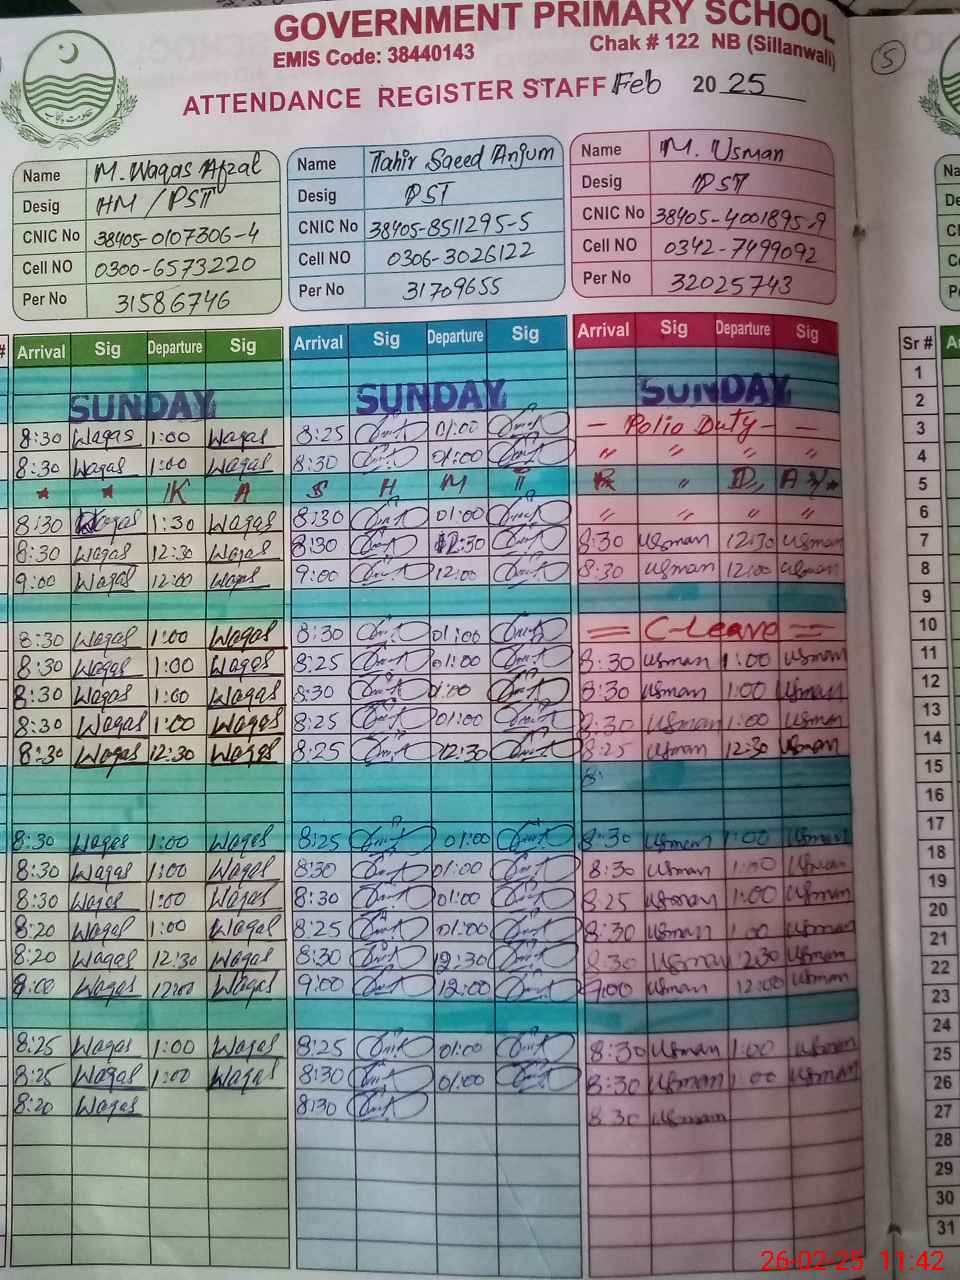 GOVERNMENT PRIMARY SCHOOL
EMIS Code: 38440143 Chak # 122 NB (Sillanwali)
ATTENDANCE REGISTER STAFF Feb 2025
5
Name M. Waqas Afzal Name Tahir Saeed Anjum Name M. Usman
Desig HM / PST Desig PST Desig PST
CNIC No 38405-0107306-4 CNIC No 38405-8511295-5 CNIC No 38405-4001895-9
Cell NO 0300-6573220 Cell NO 0306-3026122 Cell NO 0342-7499092
Per No 31586746 Per No 31709655 Per No 32025743
# Arrival Sig Departure Sig Arrival Sig Departure Sig Arrival Sig Departure Sig Sr #
1
SUNDAY SUNDAY SUNDAY 2
8:30 Waqas 1:00 Waqas 8:25 01:00 — Polio Duty — — 3
8:30 Waqas 1:00 Waqas 8:30 01:00 " " " " 4
K A S H M I R " D A Y 5
8:30 Waqas 1:30 Waqas 8:30 01:00 " " " " 6
8:30 Waqas 12:30 Waqas 8:30 12:30 8:30 Usman 12:30 Usman 7
9:00 Waqas 12:00 Waqas 9:00 12:00 8:30 Usman 12:00 Usman 8
9
8:30 Waqas 1:00 Waqas 8:30 01:00 = C-Leave = 10
8:30 Waqas 1:00 Waqas 8:25 01:00 8:30 Usman 1:00 Usman 11
8:30 Waqas 1:00 Waqas 8:30 1:00 8:30 Usman 1:00 Usman 12
8:30 Waqas 1:00 Waqas 8:25 01:00 8:30 Usman 1:00 Usman 13
8:30 Waqas 12:30 Waqas 8:25 12:30 8:25 Usman 12:30 Usman 14
8: 15
16
8:30 Waqas 1:00 Waqas 8:25 01:00 8:30 Usman 1:00 Usman 17
8:30 Waqas 1:00 Waqas 8:30 01:00 8:30 Usman 1:00 Usman 18
8:30 Waqas 1:00 Waqas 8:30 01:00 8:25 Usman 1:00 Usman 19
8:20 Waqas 1:00 Waqas 8:25 01:00 8:30 Usman 1:00 Usman 20
8:20 Waqas 12:30 Waqas 8:30 12:30 8:30 Usman 12:30 Usman 21
8:00 Waqas 12:00 Waqas 9:00 12:00 9:00 Usman 12:00 Usman 22
23
8:25 Waqas 1:00 Waqas 8:25 01:00 8:30 Usman 1:00 Usman 24
8:25 Waqas 1:00 Waqas 8:30 01:00 8:30 Usman 1:00 Usman 25
8:20 Waqas 8:30 8:30 Usman 26
27
28
29
30
31
26-02-25 11:42